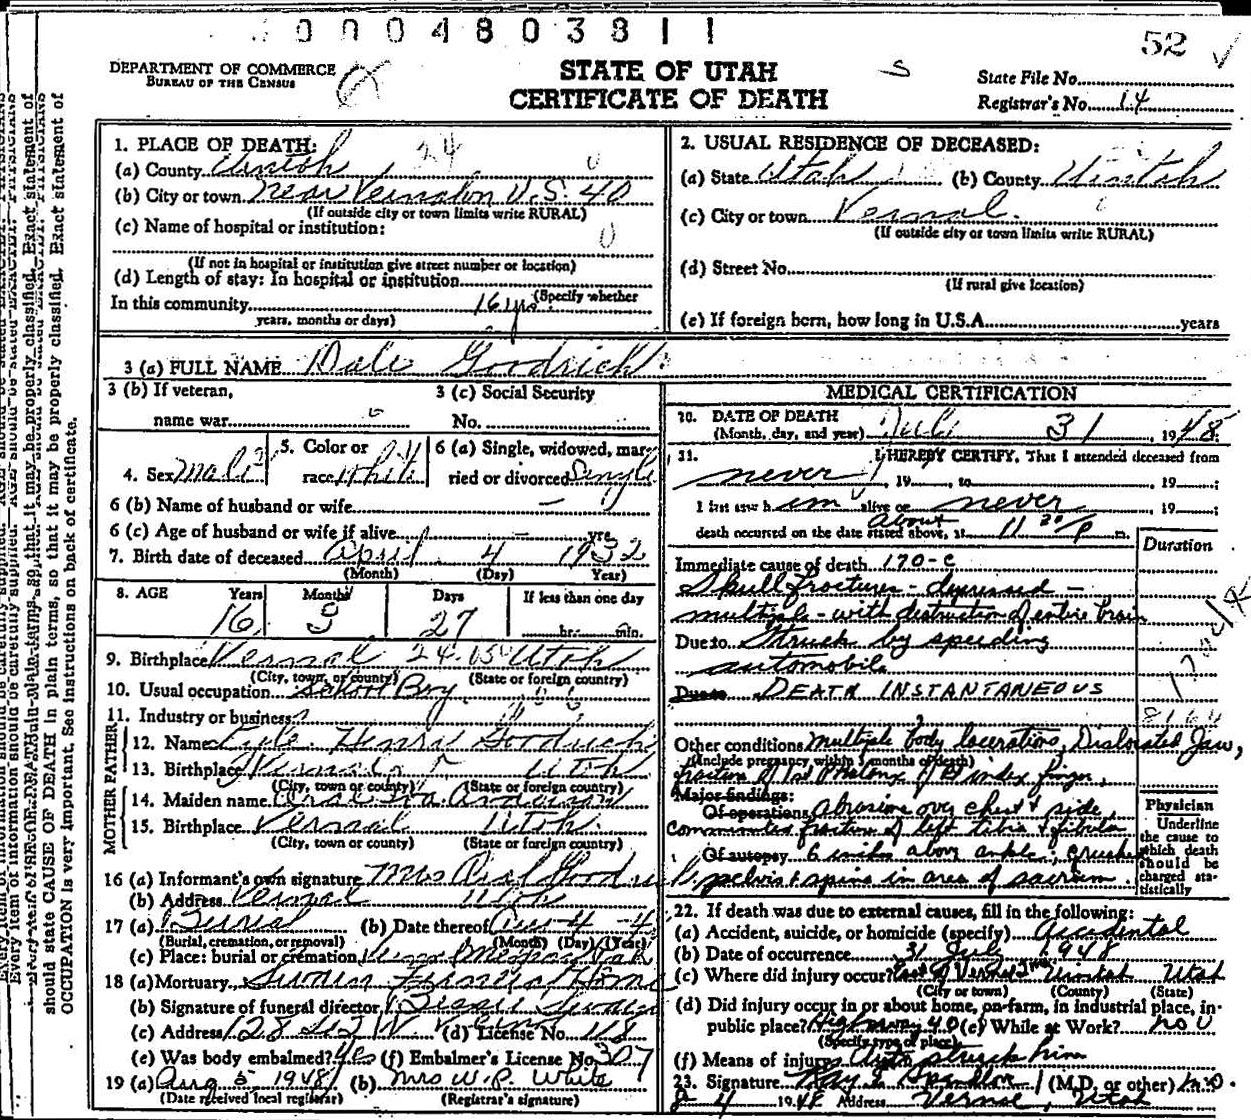 0004803811
52
DEPARTMENT OF COMMERCE
BUREAU OF THE CENSUS
STATE OF UTAH
CERTIFICATE OF DEATH
S
State File No.
Registrar's No. 14
1. PLACE OF DEATH:
24
(a) County Uintah
(b) City or town near Vernal on U.S. 40
(If outside city or town limits write RURAL)
(c) Name of hospital or institution:
(If not in hospital or institution give street number or location)
(d) Length of stay: In hospital or institution
In this community 16 yrs. (Specify whether
years, months or days)
2. USUAL RESIDENCE OF DECEASED:
(a) State Utah (b) County Uintah
(c) City or town Vernal.
(If outside city or town limits write RURAL)
(d) Street No.
(If rural give location)
(e) If foreign born, how long in U.S.A. years
3 (a) FULL NAME Dale Goodrich
3 (b) If veteran, 3 (c) Social Security
name war No.
4. Sex Male 5. Color or race White 6 (a) Single, widowed, married or divorced Single
6 (b) Name of husband or wife —
6 (c) Age of husband or wife if alive — yrs.
7. Birth date of deceased April 4 1932
(Month) (Day) Year)
8. AGE Years Months Days If less than one day
16 3 27 hr. min.
9. Birthplace Vernal 24 Utah
(City, town, or county) (State or foreign country)
10. Usual occupation School Boy
11. Industry or business
FATHER
12. Name Henry Goodrich
13. Birthplace Vernal Utah
(City, town or county) (State or foreign country)
MOTHER
14. Maiden name
15. Birthplace Vernal Utah.
(City, town or county) (State or foreign country)
16 (a) Informant's own signature Mrs
(b) Address Vernal Utah
17 (a) Burial (b) Date thereof Aug-4-4
(Burial, cremation, or removal) (Month) (Day) (Year)
(c) Place: burial or cremation
18 (a) Mortuary Funeral Home
(b) Signature of funeral director
(c) Address (d) License No. 118
(e) Was body embalmed? Yes (f) Embalmer's License No. 307
19 (a) Aug 5, 1948 (b) Mrs W. P. White
(Date received local registrar) (Registrar's signature)
MEDICAL CERTIFICATION
20. DATE OF DEATH
(Month, day, and year) July 31, 1948
21. I HEREBY CERTIFY, That I attended deceased from
never, 19, to, 19;
I last saw him alive on never, 19;
death occurred on the date stated above, at about 11 20/P m.
Duration
Immediate cause of death 170-C
Skull fractures - depressed -
multiple - with distruction of entire brain
Due to Struck by speeding
automobile
Due to DEATH INSTANTANEOUS
Other conditions multiple body lacerations, Dislocated Jaw,
(Include pregnancy within 3 months of death)
index finger,
Major findings:
Of operations abrasions over chest & side,
fraction of left tibia & fibula
Of autopsy 6 inches above ankle; Crushed
pelvis & spine in area of sacrum.
Physician
Underline the cause to which death should be charged statistically
22. If death was due to external causes, fill in the following:
(a) Accident, suicide, or homicide (specify) accidental
(b) Date of occurrence 31 July 1948
(c) Where did injury occur? East of Vernal Uintah Utah
(City or town) (County) (State)
(d) Did injury occur in or about home, on farm, in industrial place, in
public place? Highway 40 (e) While at Work? no
(Specify type of place)
(f) Means of injury Auto struck him
23. Signature (M.D. or other) M.D.
8-4 1948 Address Vernal, Utah
should state CAUSE OF DEATH in plain terms, so that it may be properly classified. Exact statement of
OCCUPATION is very important. See instructions on back of certificate.